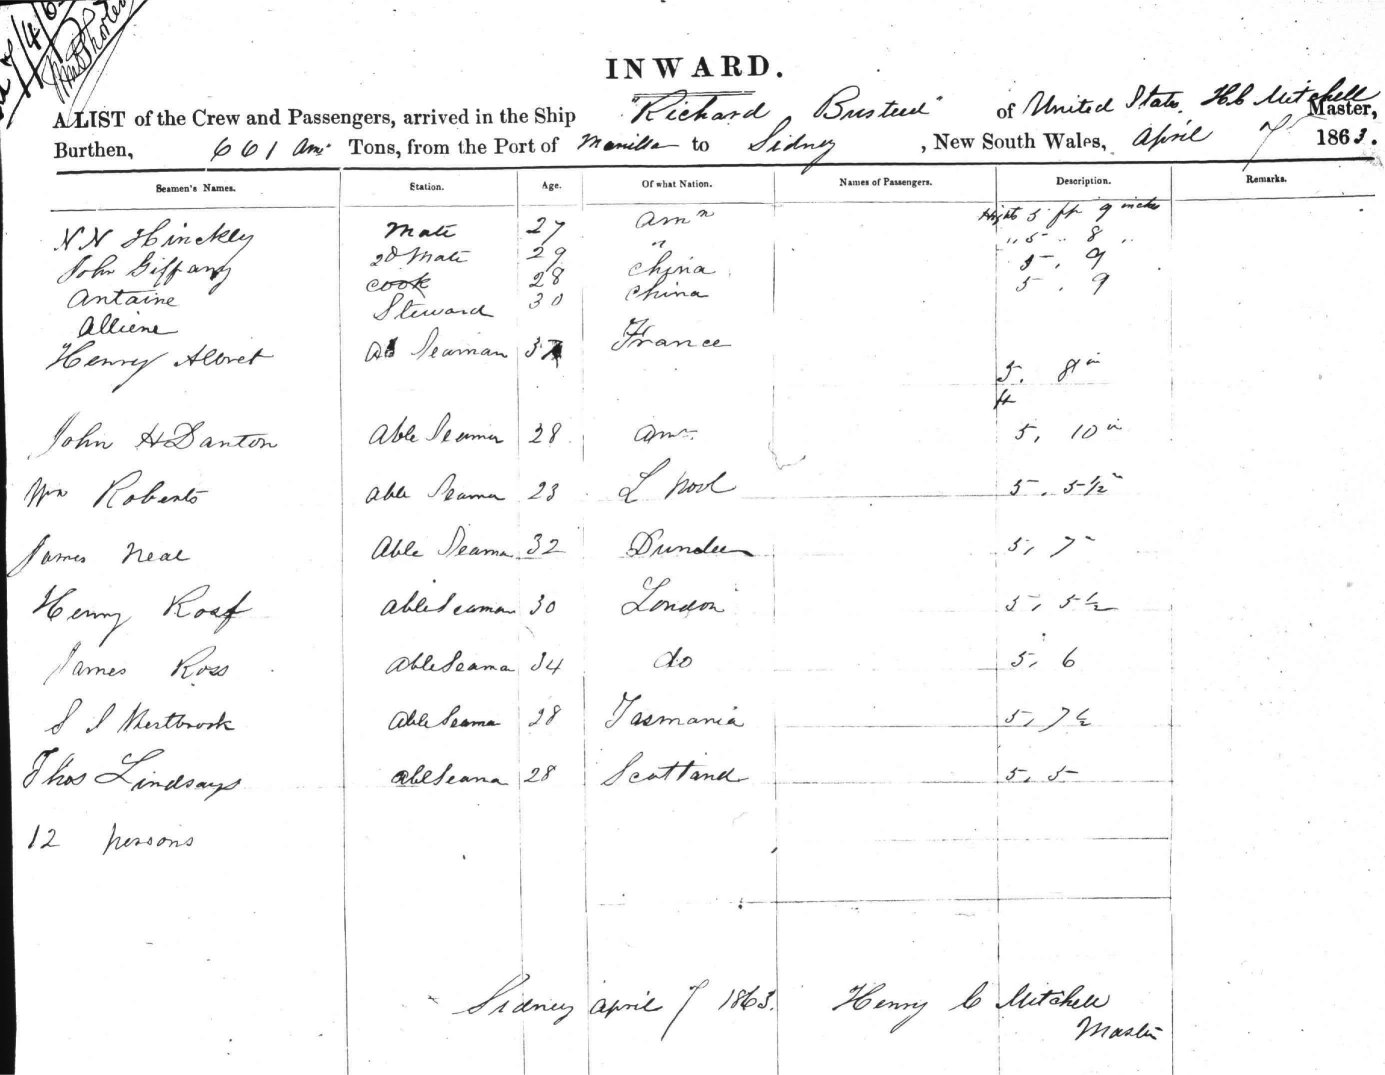 INWARD.
A LIST of the Crew and Passengers, arrived in the Ship "Richard Busteed" of United States. H C Mitchell Master,
Burthen, 661 Am. Tons, from the Port of Manilla to Sidney, New South Wales, April 7 1863.
Seamen's Names. Station. Age. Of what Nation. Names of Passengers. Description. Remarks.
N N Hinckley Mate 27 Amn Hights 5 ft 9 inches
John Giffany 2d Mate 29 " " 5 " 8 "
Antaine cook 28 China 5, 9
Alliene Steward 30 China 5, 9
Henry Albret Ab Seaman 37 France 5. 8 in
ft
John H Danton Able Seaman 28 Amn. 5, 10 in
Wm Roberts able Seaman 23 L pool 5. 5 1/2 "
James Neal Able Seama 32 Dundee 5, 7 "
Henry Able Seaman 30 London 5, 5 1/2
James Ross Able Seama 34 do 5, 6
S S Westbrook Able Seama 28 Tasmania 5, 7 1/2
Thos Lindsays able Seama 28 Scotland 5, 5
12 persons
Sidney April 7 1863. Henry C Mitchell
Master